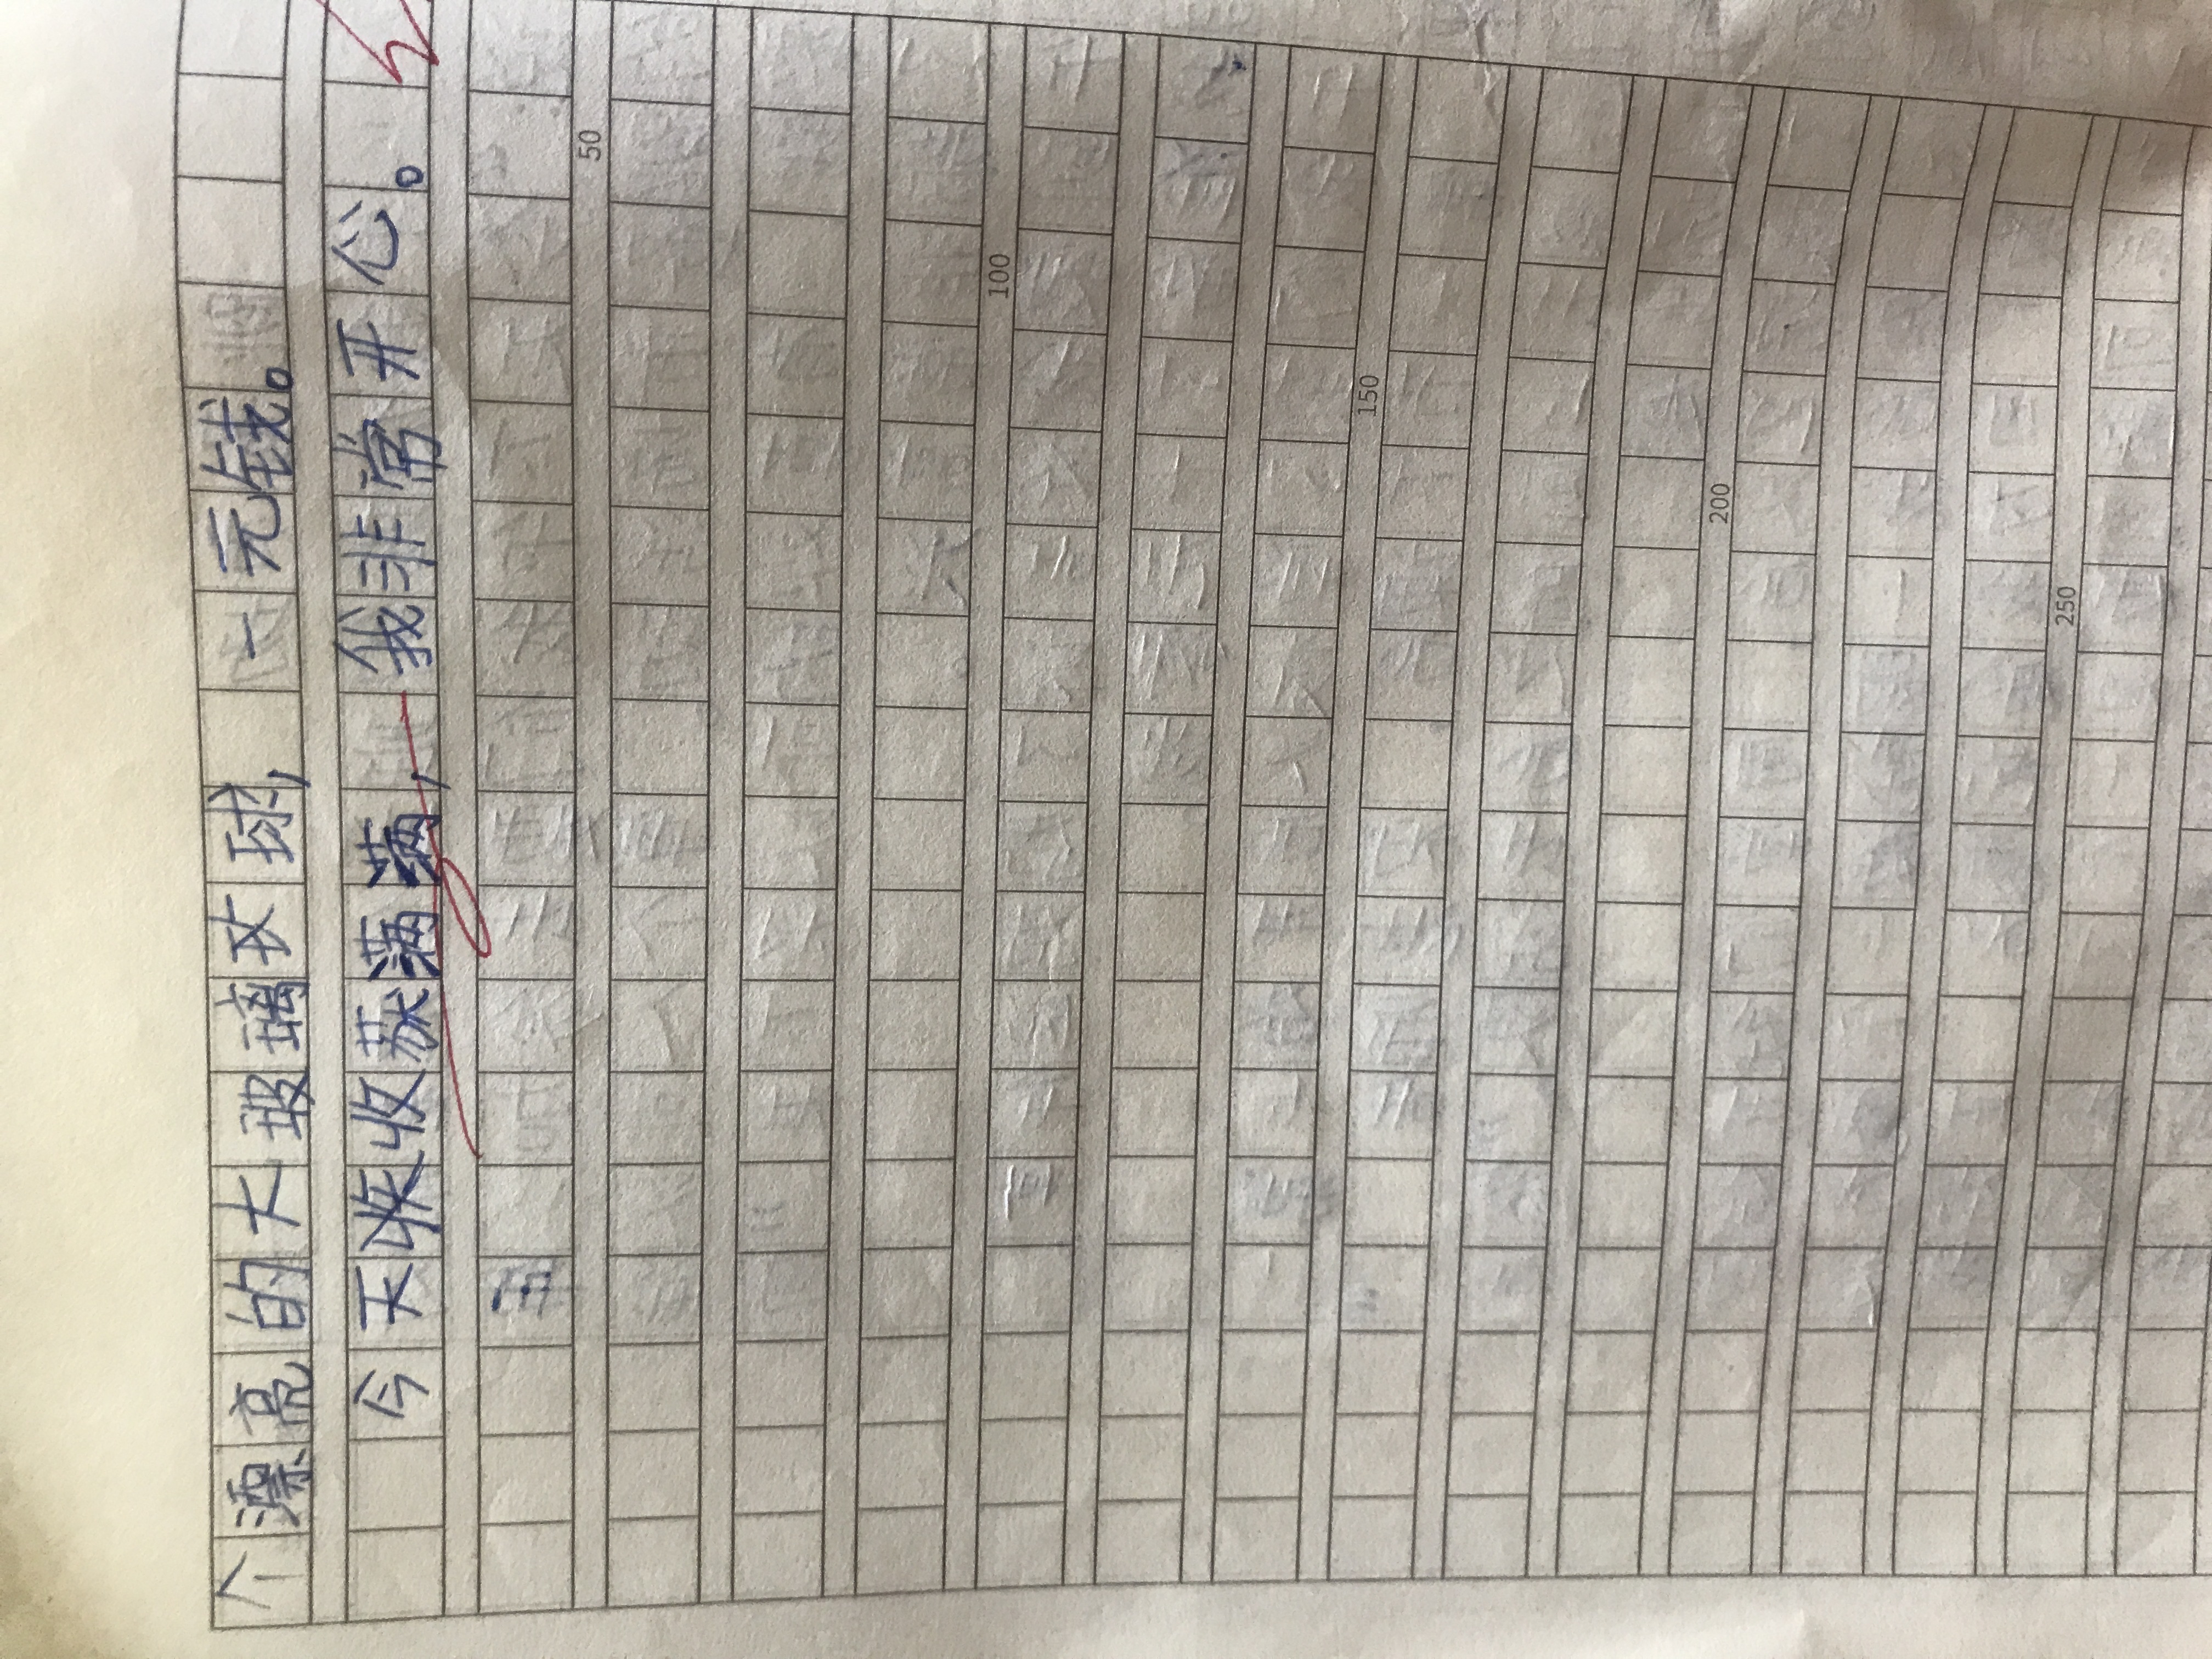 个漂亮的大玻璃玫球，一元钱。
今天收获满满，我非常开心。
50
100
150
200
250